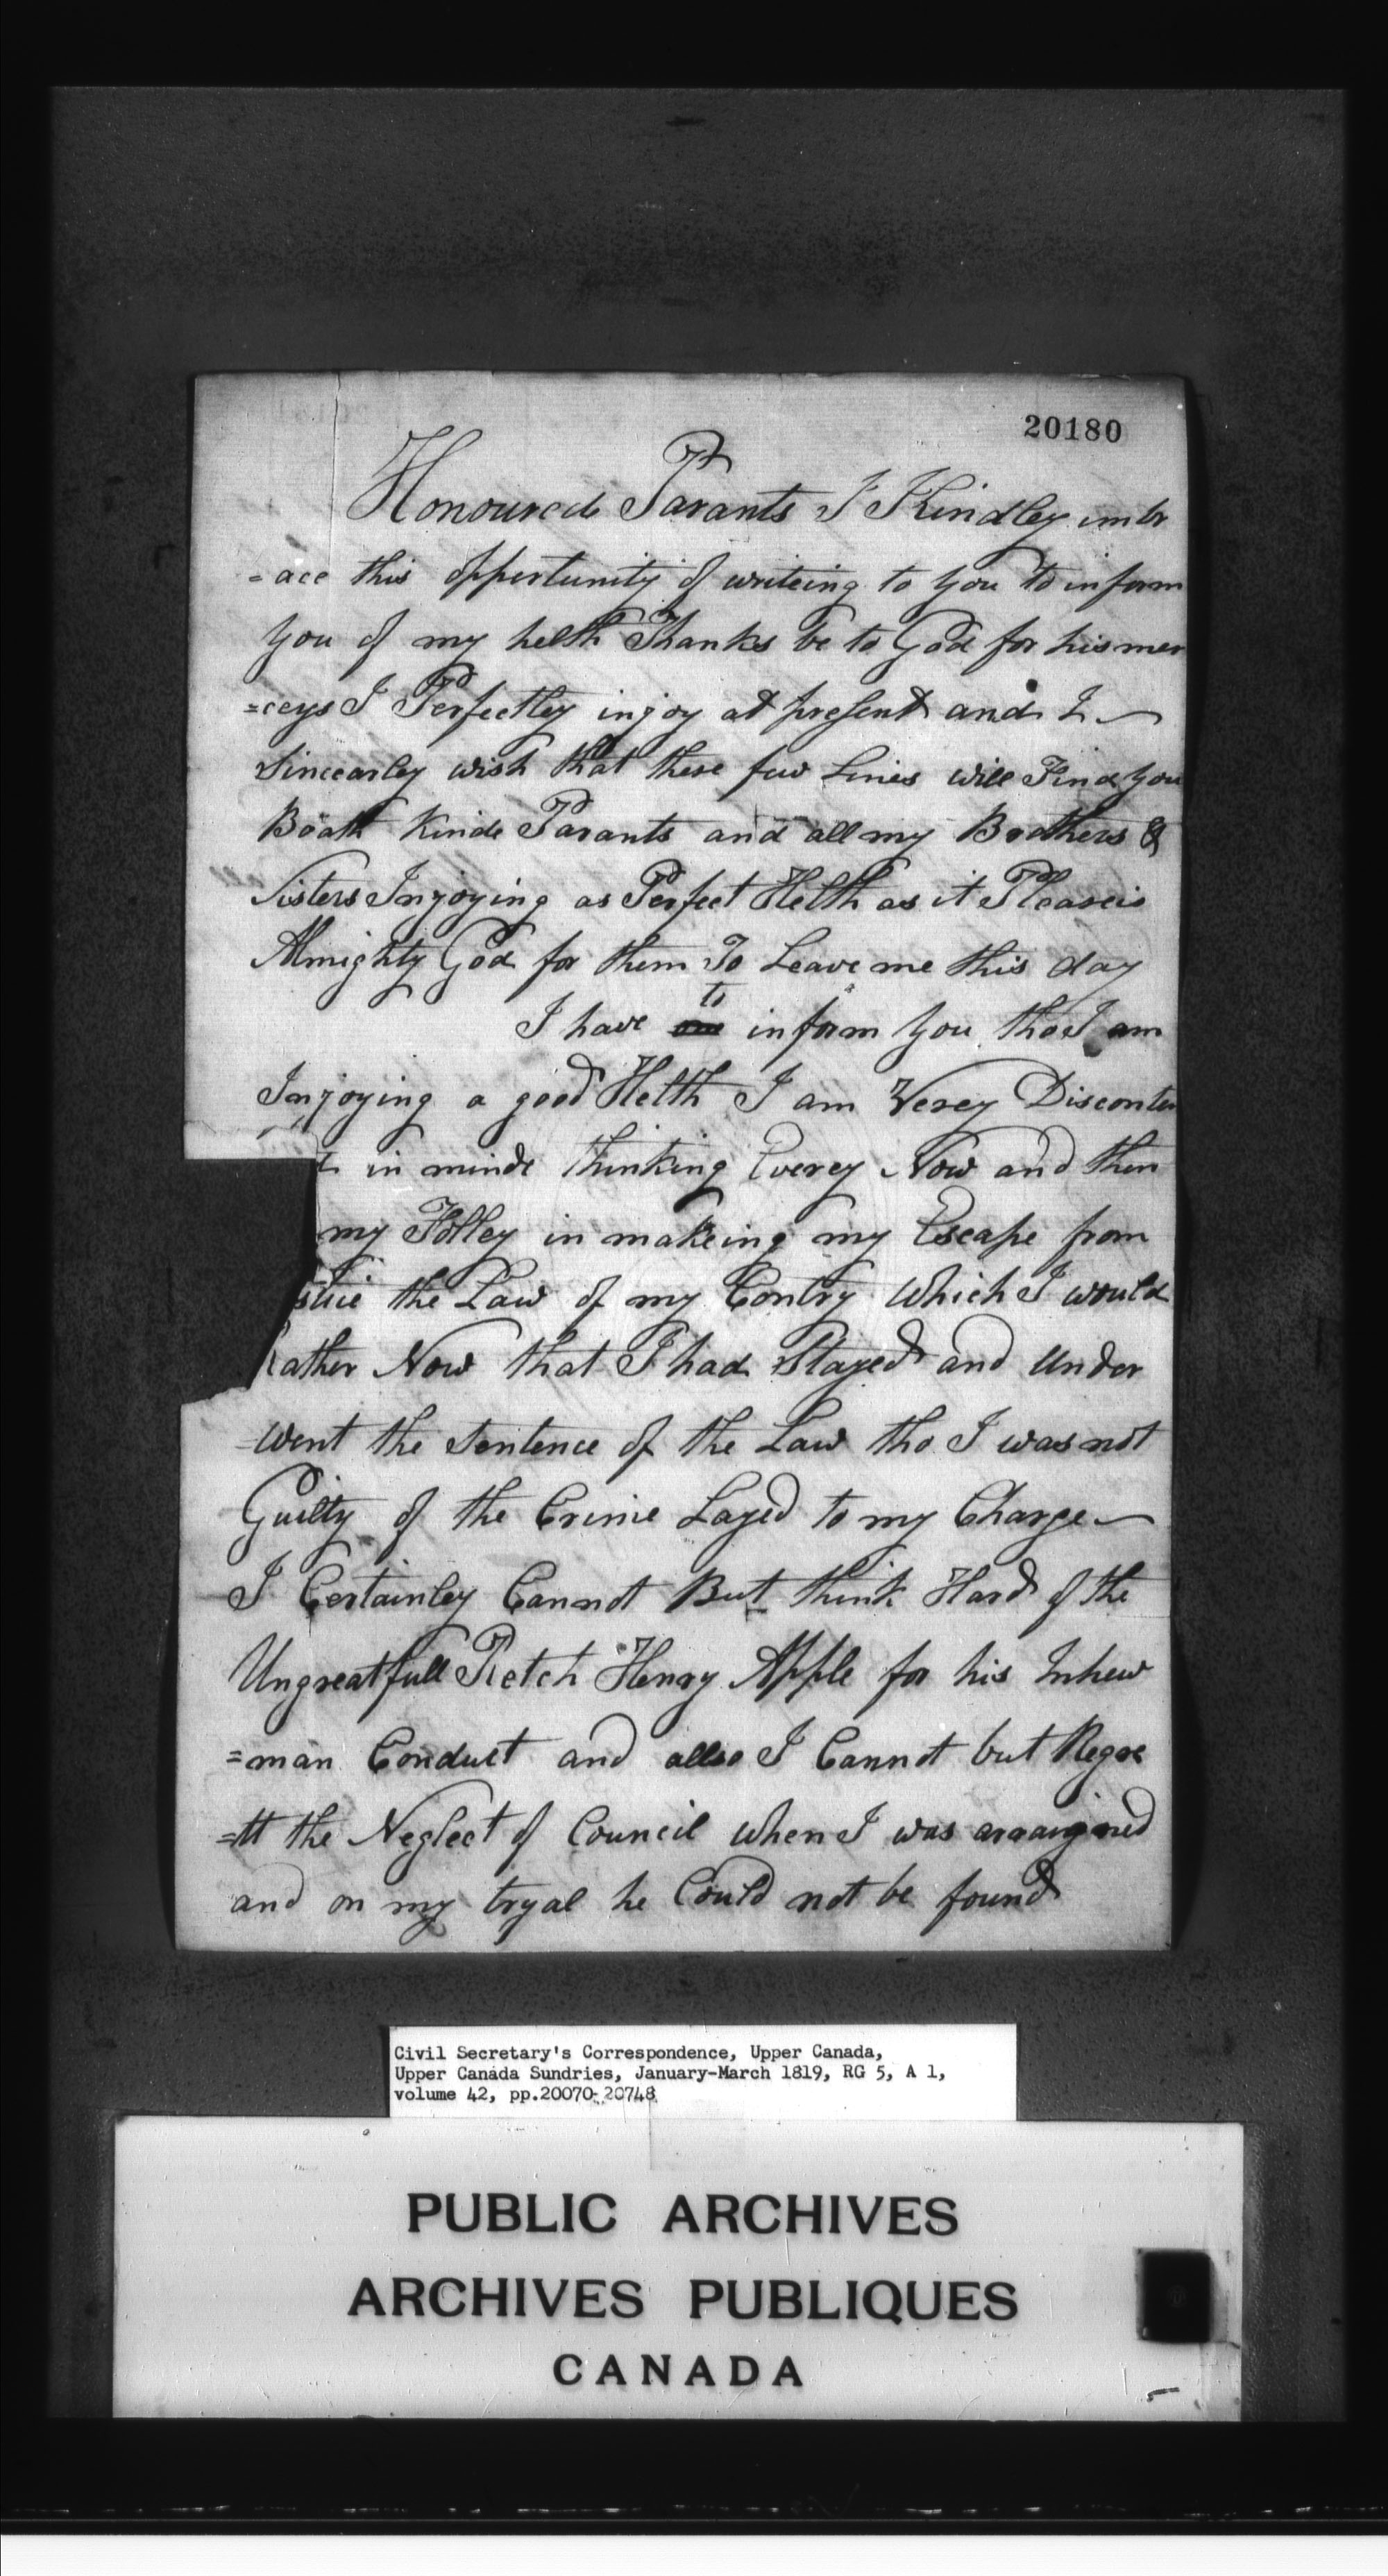 20180
Honoured Parants I Kindley imbr
=ace this oppertunity of writeing to you to inform
you of my helth Thanks be to God for his mer
=ceys I Perfectley injoy at present and I
Sincearley wish that these few Lines will Find you
Boath Kinde Parants and all my Brothers &
Sisters Injoying as Perfect Helth as it Pleaseis
Almighty God for them To Leave me this day
I have to inform you tho I am
Injoying a good Helth I am Verey Disconten
in minde thinking Everey Now and then
my Folley in makeing my Escape from
stice the Law of my Contry which I would
Rather Now that I had Stayed and Under
=went the Sentence of the Law tho I was not
Guilty of the Crime Layed to my Charge
I Certainley Cannot But think Hard of the
Ungreatfull Retch Henry Apple for his Inhew
=man Conduct and allso I Cannot but Regre
=tt the Neglect of Council when I was arraigned
and on my tryal he Could not be found
Civil Secretary's Correspondence, Upper Canada,
Upper Canada Sundries, January-March 1819, RG 5, A 1,
volume 42, pp.20070-20748
PUBLIC ARCHIVES
ARCHIVES PUBLIQUES
CANADA